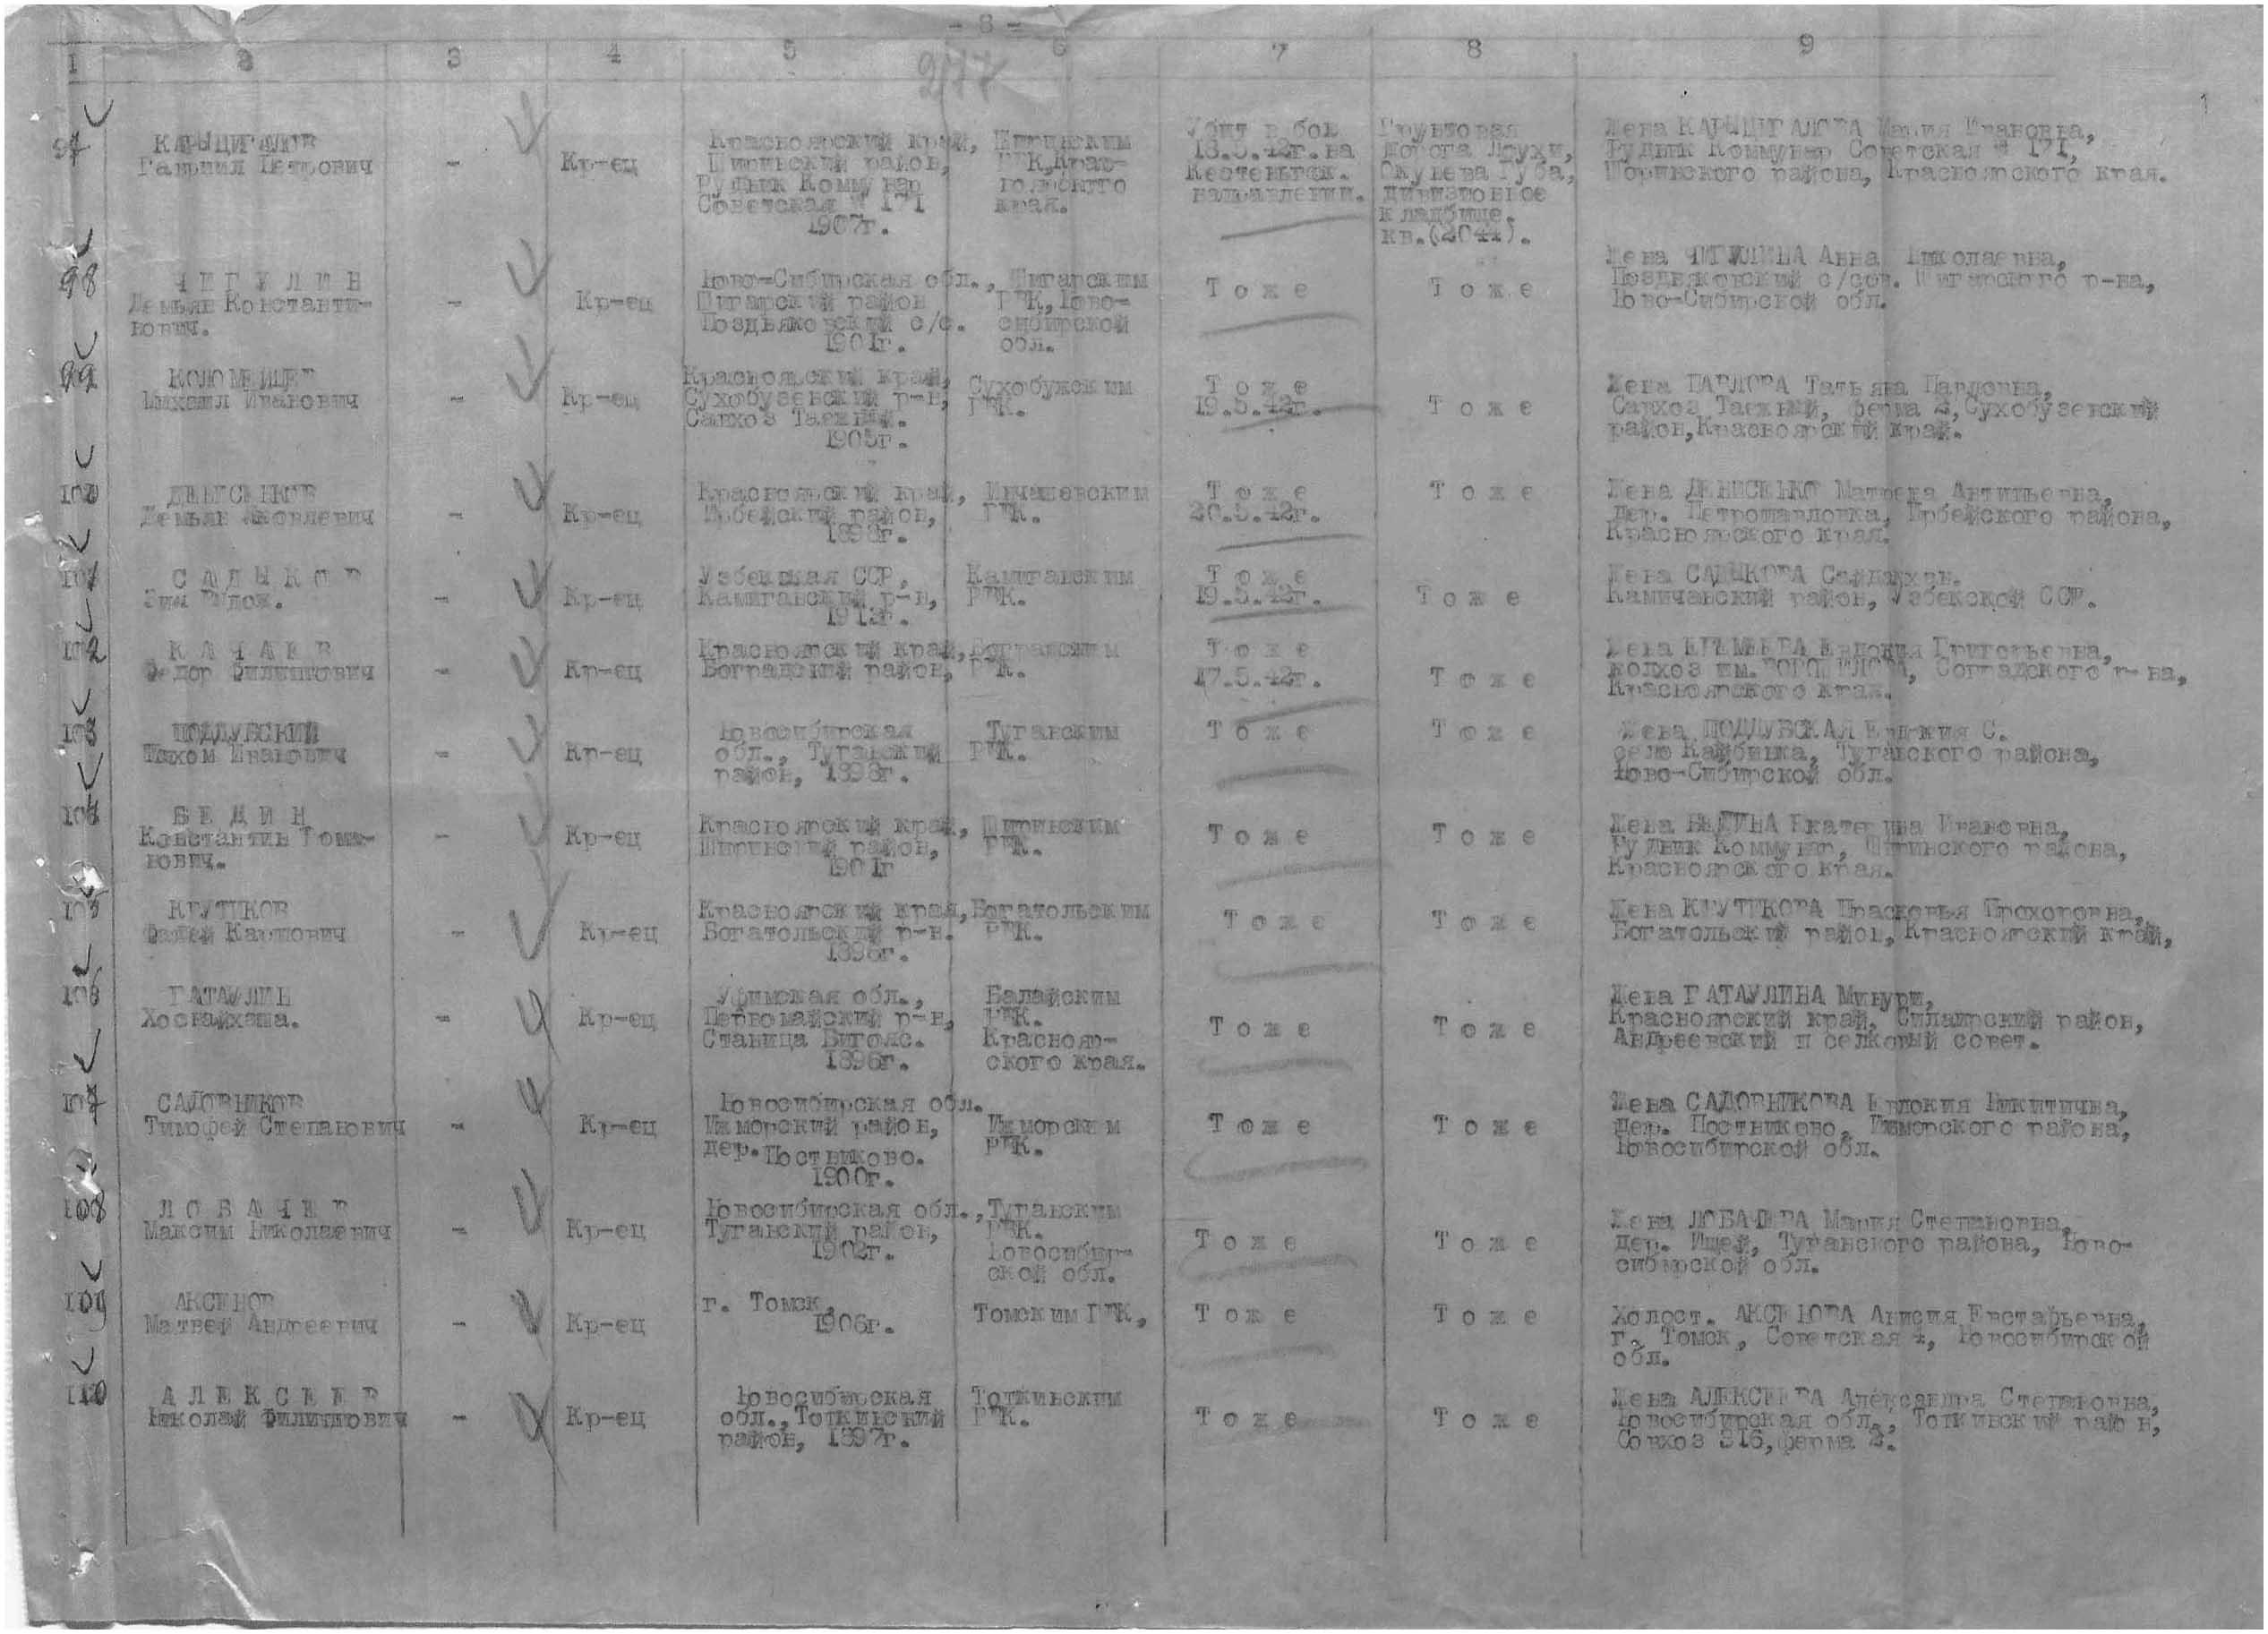 - 8 -
1 2 3 4 5 6 7 8 9
277
97
КАРЫЦИГАЛОВ
Гавриил Петрович
-
Кр-ец
Красноярский край,
Ширинский район,
Рудник Коммунар
Советская № 171
1907г.
Ширинским
РВК, Крас-
ноярского
края.
Убит в бою
18.5.42г. на
Кестеньгск.
направлении.
Грунтовая
дорога Лоухи,
Окунева Губа,
дивизионное
кладбище.
кв.(2044).
Жена КАРЫЦИГАЛОВА Мария Ивановна,
Рудник Коммунар Советская № 171,
Ширинского района, Красноярского края.
98
ЧИГУЛИН
Демьян Константи-
нович.
-
Кр-ец
Ново-Сибирская обл.,
Шигарский район
Поздняковский с/с.
1901г.
Шигарским
РВК, Ново-
сибирской
обл.
Тоже
Тоже
Жена ЧИГУЛИНА Анна Николаевна,
Поздняковский с/сов. Шигарского р-на,
Ново-Сибирской обл.
99
КОЛОМЕЙЦЕВ
Михаил Иванович
-
Кр-ец
Красноярский край,
Сухобузевский р-н,
Совхоз Таежный.
1905г.
Сухобужским
РВК.
Тоже
19.5.42г.
Тоже
Жена ПАВЛОВА Татьяна Павловна,
Совхоз Таежный, ферма 2, Сухобузевский
район, Красноярский край.
100
Демьян Яковлевич
-
Кр-ец
Красноярский край,
Ирбейский район,
1898г.
РВК.
Тоже
20.5.42г.
Тоже
Жена ДЕНИСЕНКО Матрена Антипьевна,
дер. Петропавловка, Ирбейского района,
Красноярского края.
101
САДЫКОВ
-
Кр-ец
Узбекская ССР,
Камиганский р-н,
1913г.
Камиганским
РВК.
Тоже
19.5.42г.
Тоже
Жена САДЫКОВА
Камичанский район, Узбекской ССР.
102
КАЧАЕВ
Федор Филиппович
-
Кр-ец
Красноярский край,
Боградский район,
Боградским
РВК.
Тоже
17.5.42г.
Тоже
Жена ЕРЕМЕЕВА Евдокия Григорьевна,
колхоз им. ВОРОШИЛОВА, Соградского р-на,
Красноярского края.
103
ПОДДУБСКИЙ
Тихом Иванович
-
Кр-ец
Новосибирская
обл., Туганский
район, 1898г.
Туганским
РВК.
Тоже
Тоже
Жена ПОДДУБСКАЯ С.
село Кайбинка, Туганского района,
Ново-Сибирской обл.
104
БЕДИН
Константин Рома-
нович.
-
Кр-ец
Красноярский край,
Ширинский район,
1901г
Ширинским
РВК.
Тоже
Тоже
Жена БЕДИНА Екатерина Ивановна,
Рудник Коммунар, Ширинского района,
Красноярского края.
105
КРУТИКОВ
Фадей Карпович
-
Кр-ец
Красноярский край,
Богатольский р-н.
1898г.
Богатольским
РВК.
Тоже
Тоже
Жена КРУТИКОВА Прасковья Прохоровна,
Богатольский район, Красноярский край,
106
ГАТАУЛИН
Хоснайхаша.
-
Кр-ец
Уфимская обл.,
Первомайский р-н,
Станица Биголяс.
1896г.
Балайским
РВК.
Краснояр-
ского края.
Тоже
Тоже
Жена ГАТАУЛИНА Минури,
Красноярский край, Силаирский район,
Андреевский п селковый совет.
107
САДОВНИКОВ
Тимофей Степанович
-
Кр-ец
Новосибирская обл.
Ижморский район,
дер. Постниково.
1900г.
Ижморским
РВК.
Тоже
Тоже
Жена САДОВНИКОВА Евдокия Никитична,
дер. Постниково, Ижморского района,
Новосибирской обл.
108
ЛОБАЧЕВ
Максим Николаевич
-
Кр-ец
Новосибирская обл.,
Туганский район,
1902г.
Туганским
РВК.
Новосибир-
ской обл.
Тоже
Тоже
Жена ЛОБАЧЕВА Мария Степановна,
дер. Ищей, Туганского района, Ново-
сибирской обл.
109
АКСЕНОВ
Матвей Андреевич
-
Кр-ец
г. Томск,
1906г.
Томским ГВК,
Тоже
Тоже
Холост. АКСЕНОВА Анисия Евстафьевна,
г. Томск, Советская 4, Новосибирской
обл.
110
АЛЕКСЕЕВ
Николай Филиппович
-
Кр-ец
Новосибирская
обл., Топкинский
район, 1897г.
Топкинским
РВК.
Тоже
Тоже
Жена АЛЕКСЕЕВА Александра Степановна,
Новосибирская обл., Топкинский район,
Совхоз 316, ферма 2.